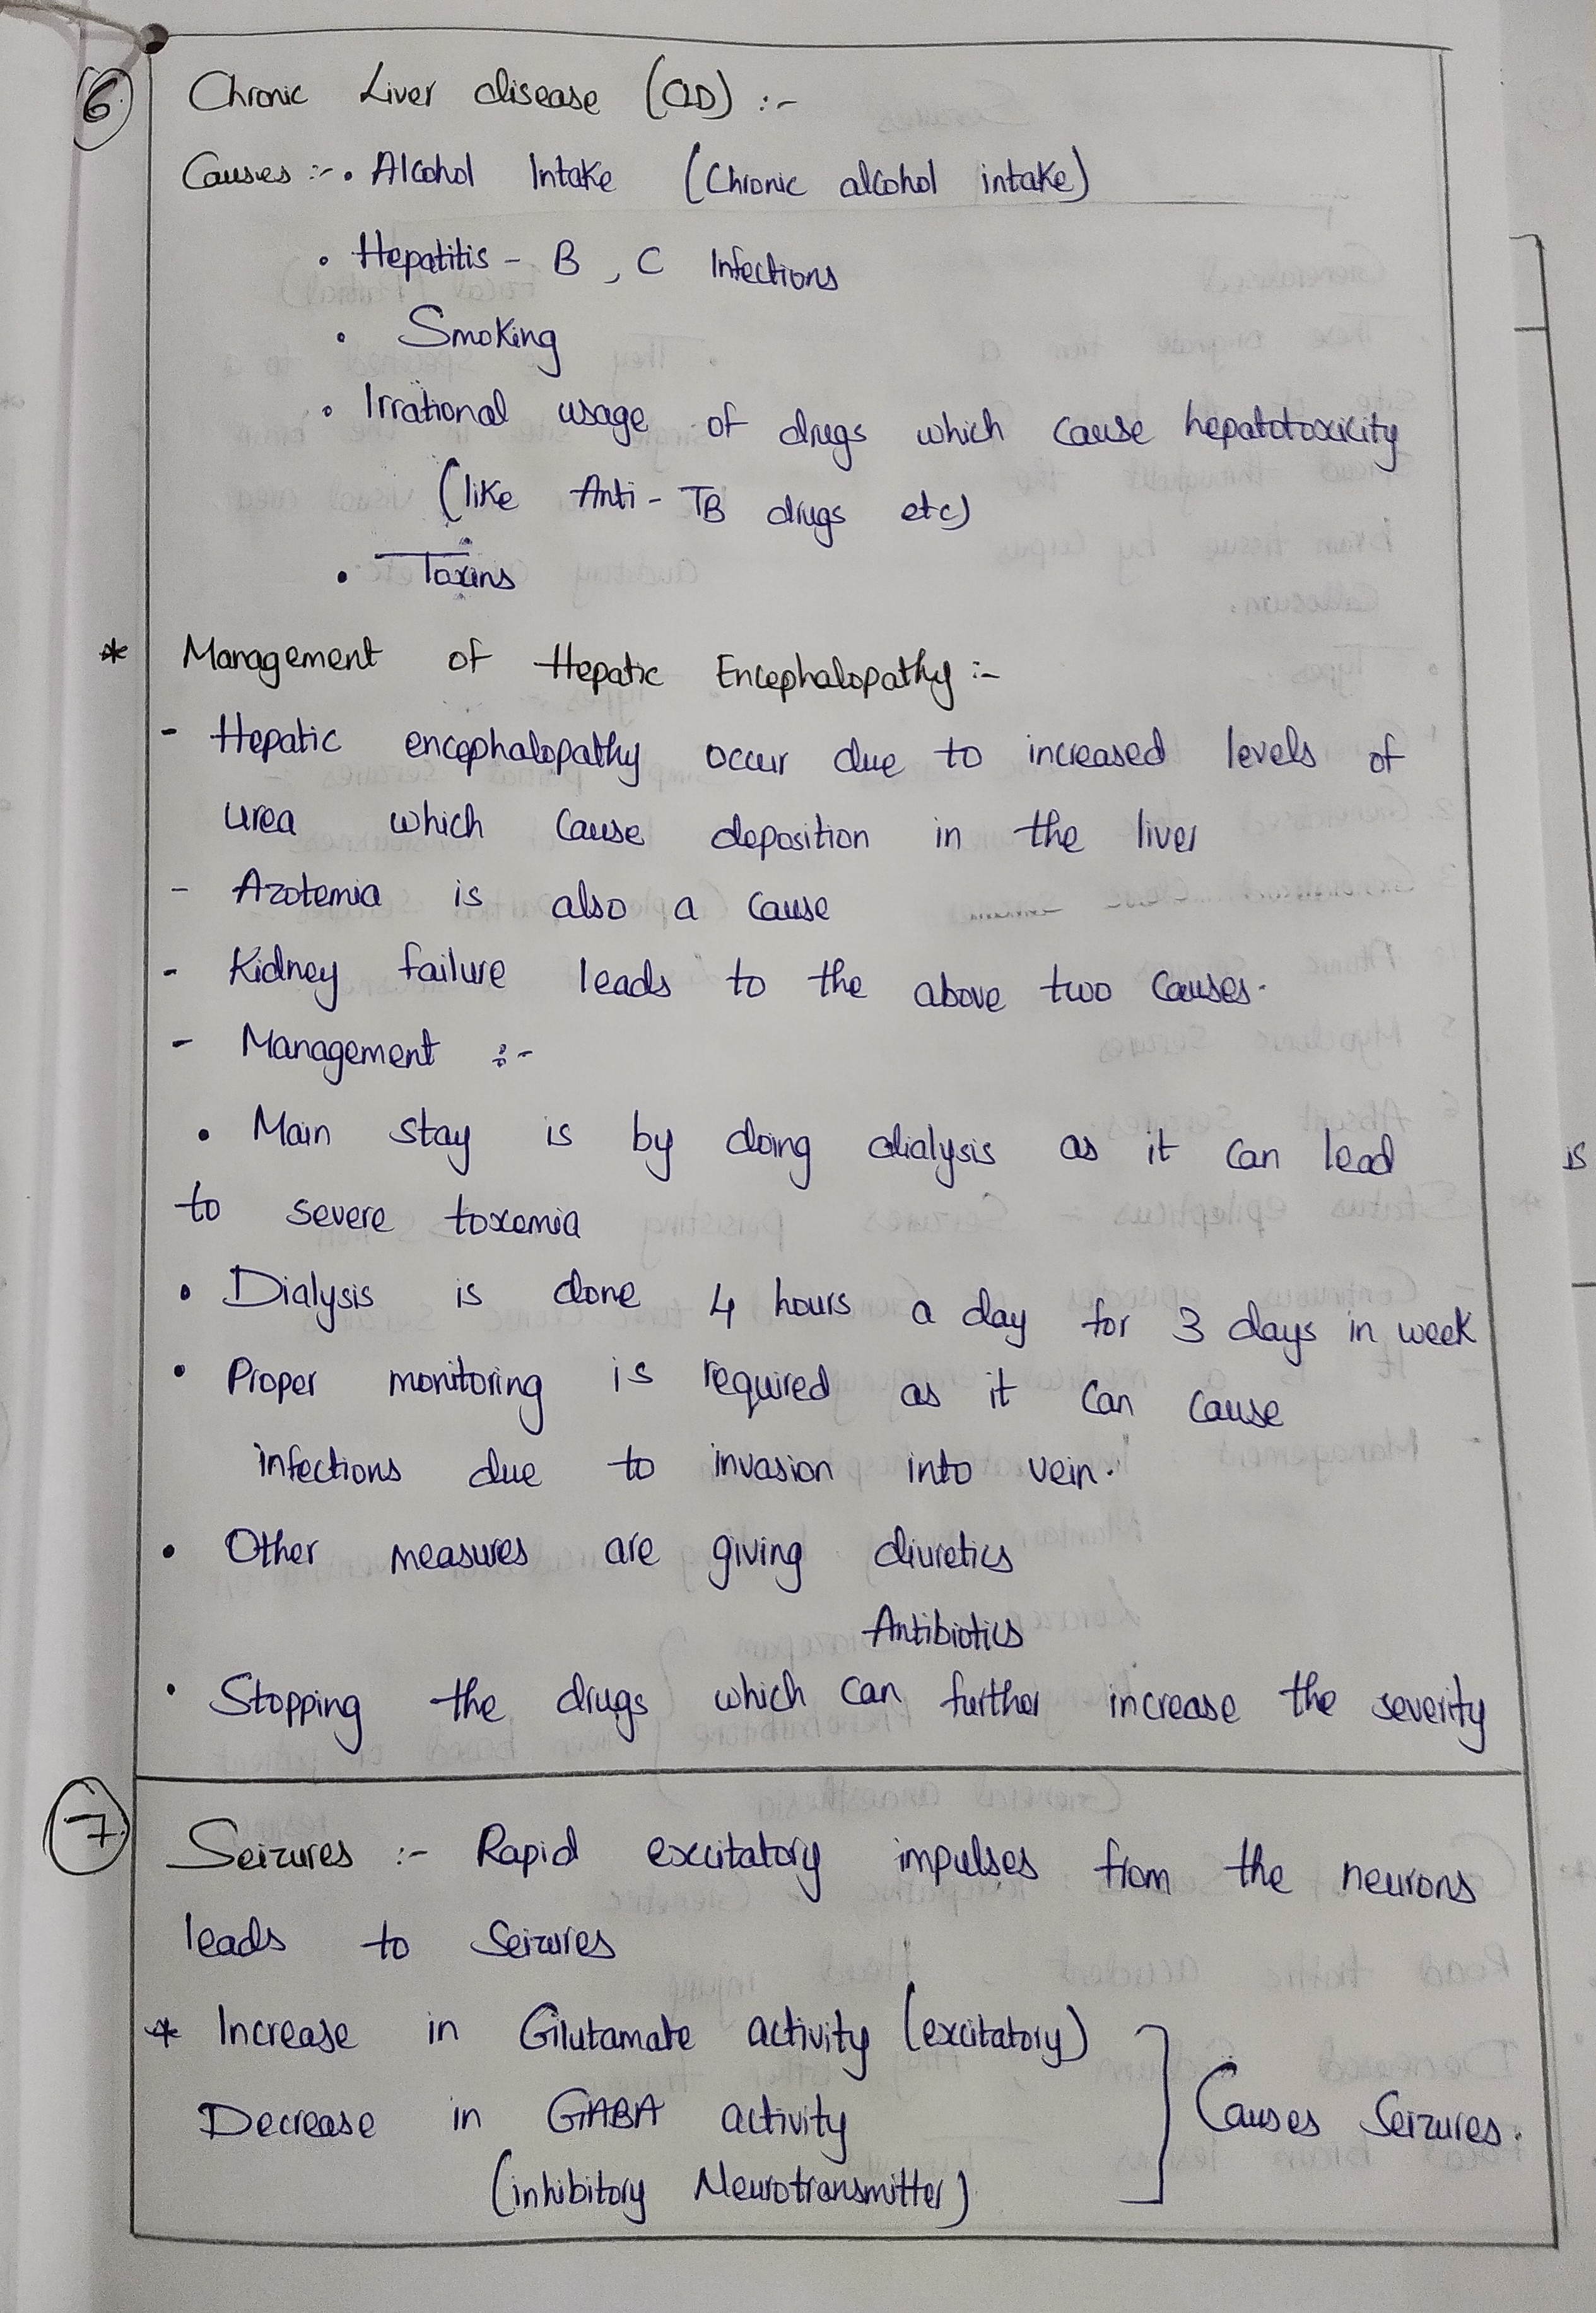 6.
Chronic Liver disease (CLD) :-
Causes :- • Alcohol Intake (Chronic alcohol intake)
• Hepatitis - B, C Infections
• Smoking
• Irrational usage of drugs which cause hepatotoxicity
(like Anti - TB drugs etc)
• Toxins
* Management of Hepatic Encephalopathy :-
- Hepatic encephalopathy occur due to increased levels of
urea which cause deposition in the liver
- Azotemia is also a cause
- Kidney failure leads to the above two causes.
- Management :-
• Main stay is by doing dialysis as it can lead
to severe toxemia
• Dialysis is done 4 hours a day for 3 days in week
• Proper monitoring is required as it can cause
infections due to invasion into vein.
• Other measures are giving diuretics
Antibiotics
• Stopping the drugs which can further increase the severity
7.
Seizures :- Rapid excitatory impulses from the neurons
leads to Seizures
* Increase in Glutamate activity (excitatory)
Decrease in GABA activity
(inhibitory Neurotransmitter)
Causes Seizures.
is